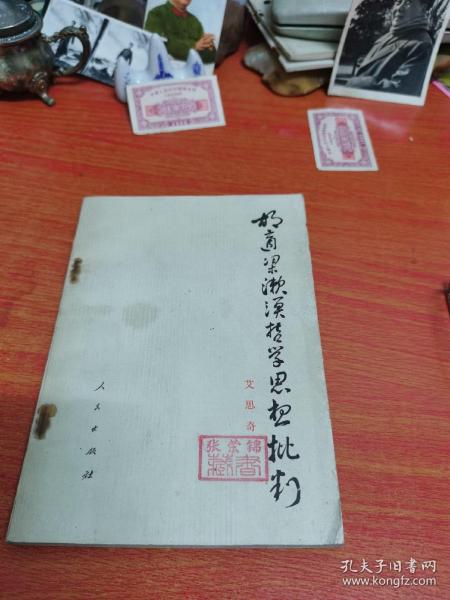 胡適梁漱溟哲学思想批判
艾思奇
张荣锦
藏书
人民出版社
孔夫子旧书网
www.kongfz.com